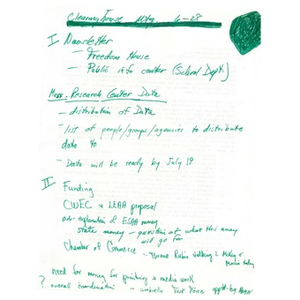 Clearinghouse Mtg 6-28
I Newsletter
— Freedom House
— Public info center (School Dept)
Mass. Research Center Data
— distribution of Data
— list of people/groups/agencies to distribute
data to
— Data will be ready by July 19
II Funding
CWEC + LEAA proposal
explanation of ESAA money
state money — question of what this money
will go for
Chamber of Commerce —
need for money for printing & media work
? overall coordination —